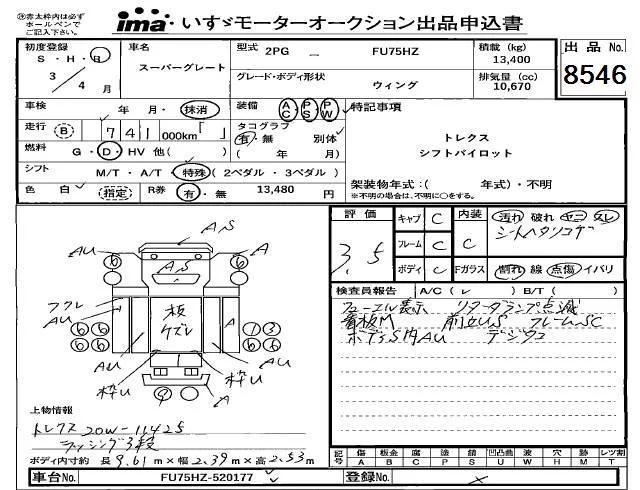 ㊟赤太枠内は必ず
ボールペンで
ご記入下さい。
ima いすゞモーターオークション出品申込書
初度登録
S・H・R
3 / 4 月
車名
スーパーグレート
型式 2PG － FU75HZ
グレード・ボディ形状
ウィング
積載 (kg)
13,400
排気量 (cc)
10,670
出品 No.
8546
車検 年 月・抹消
装備 AC・PS・PW
特記事項
走行 (B) 741 000km「 」
タコグラフ
有・無 別体
( 年 月)
トレクス
シフトパイロット
燃料 G・D・HV 他( )
シフト M/T・A/T・特殊(2ペダル・3ペダル)
色 白 指定 R券 有・無 13,480 円
架装物年式:( 年式)・不明
※不明の場合は、不明に○をする。
評価 3.5
キャブ C
フレーム C
ボディ C
内装 C
Fガラス
汚れ 破れ ヤニ スレ
シートヘタリコゲ
割れ 線 点傷 イバリ
検査員報告 A/C (レ) B/T ( )
フューエル表示 リタータランプ点滅
看板M 前立US フレームSC
ボデS内AU デジタコ
AS
AU A
6 6
AS
フクレ
AU
板
ケズレ
A
6 6 1 3
6 6 6 6
AU AU
枠U 枠U
9 A
上物情報
トレクス 20W-11425
ラッシング3段
ボディ内寸約 長 9.61m×幅 2.39m×高 2.53m
記号 傷 板金 腐 塗 錆 凹凸曲 波 穴 跡 レツ割
A B C P S U W H M T
車台No. FU75HZ-520177
登録No.